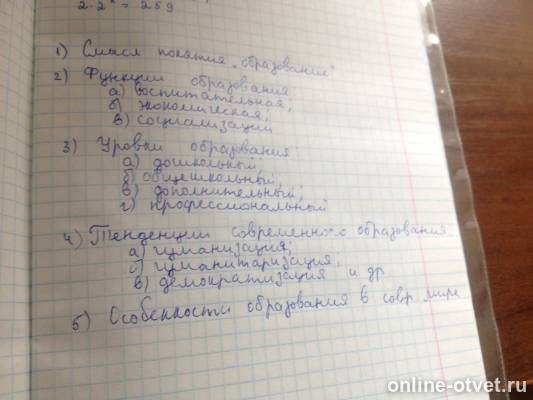 2·2ˣ = 259
1) Смысл понятия „образование"
2) Функции образования:
а) воспитательная;
б) экономическая;
в) социализации
3) Уровни образования:
а) дошкольный,
б) общешкольный,
в) дополнительный,
г) профессиональный
4) Тенденции современного образования:
а) гуманизация;
б) гуманитаризация;
в) демократизация и др
5) Особенности образования в совр. мире
online-otvet.ru